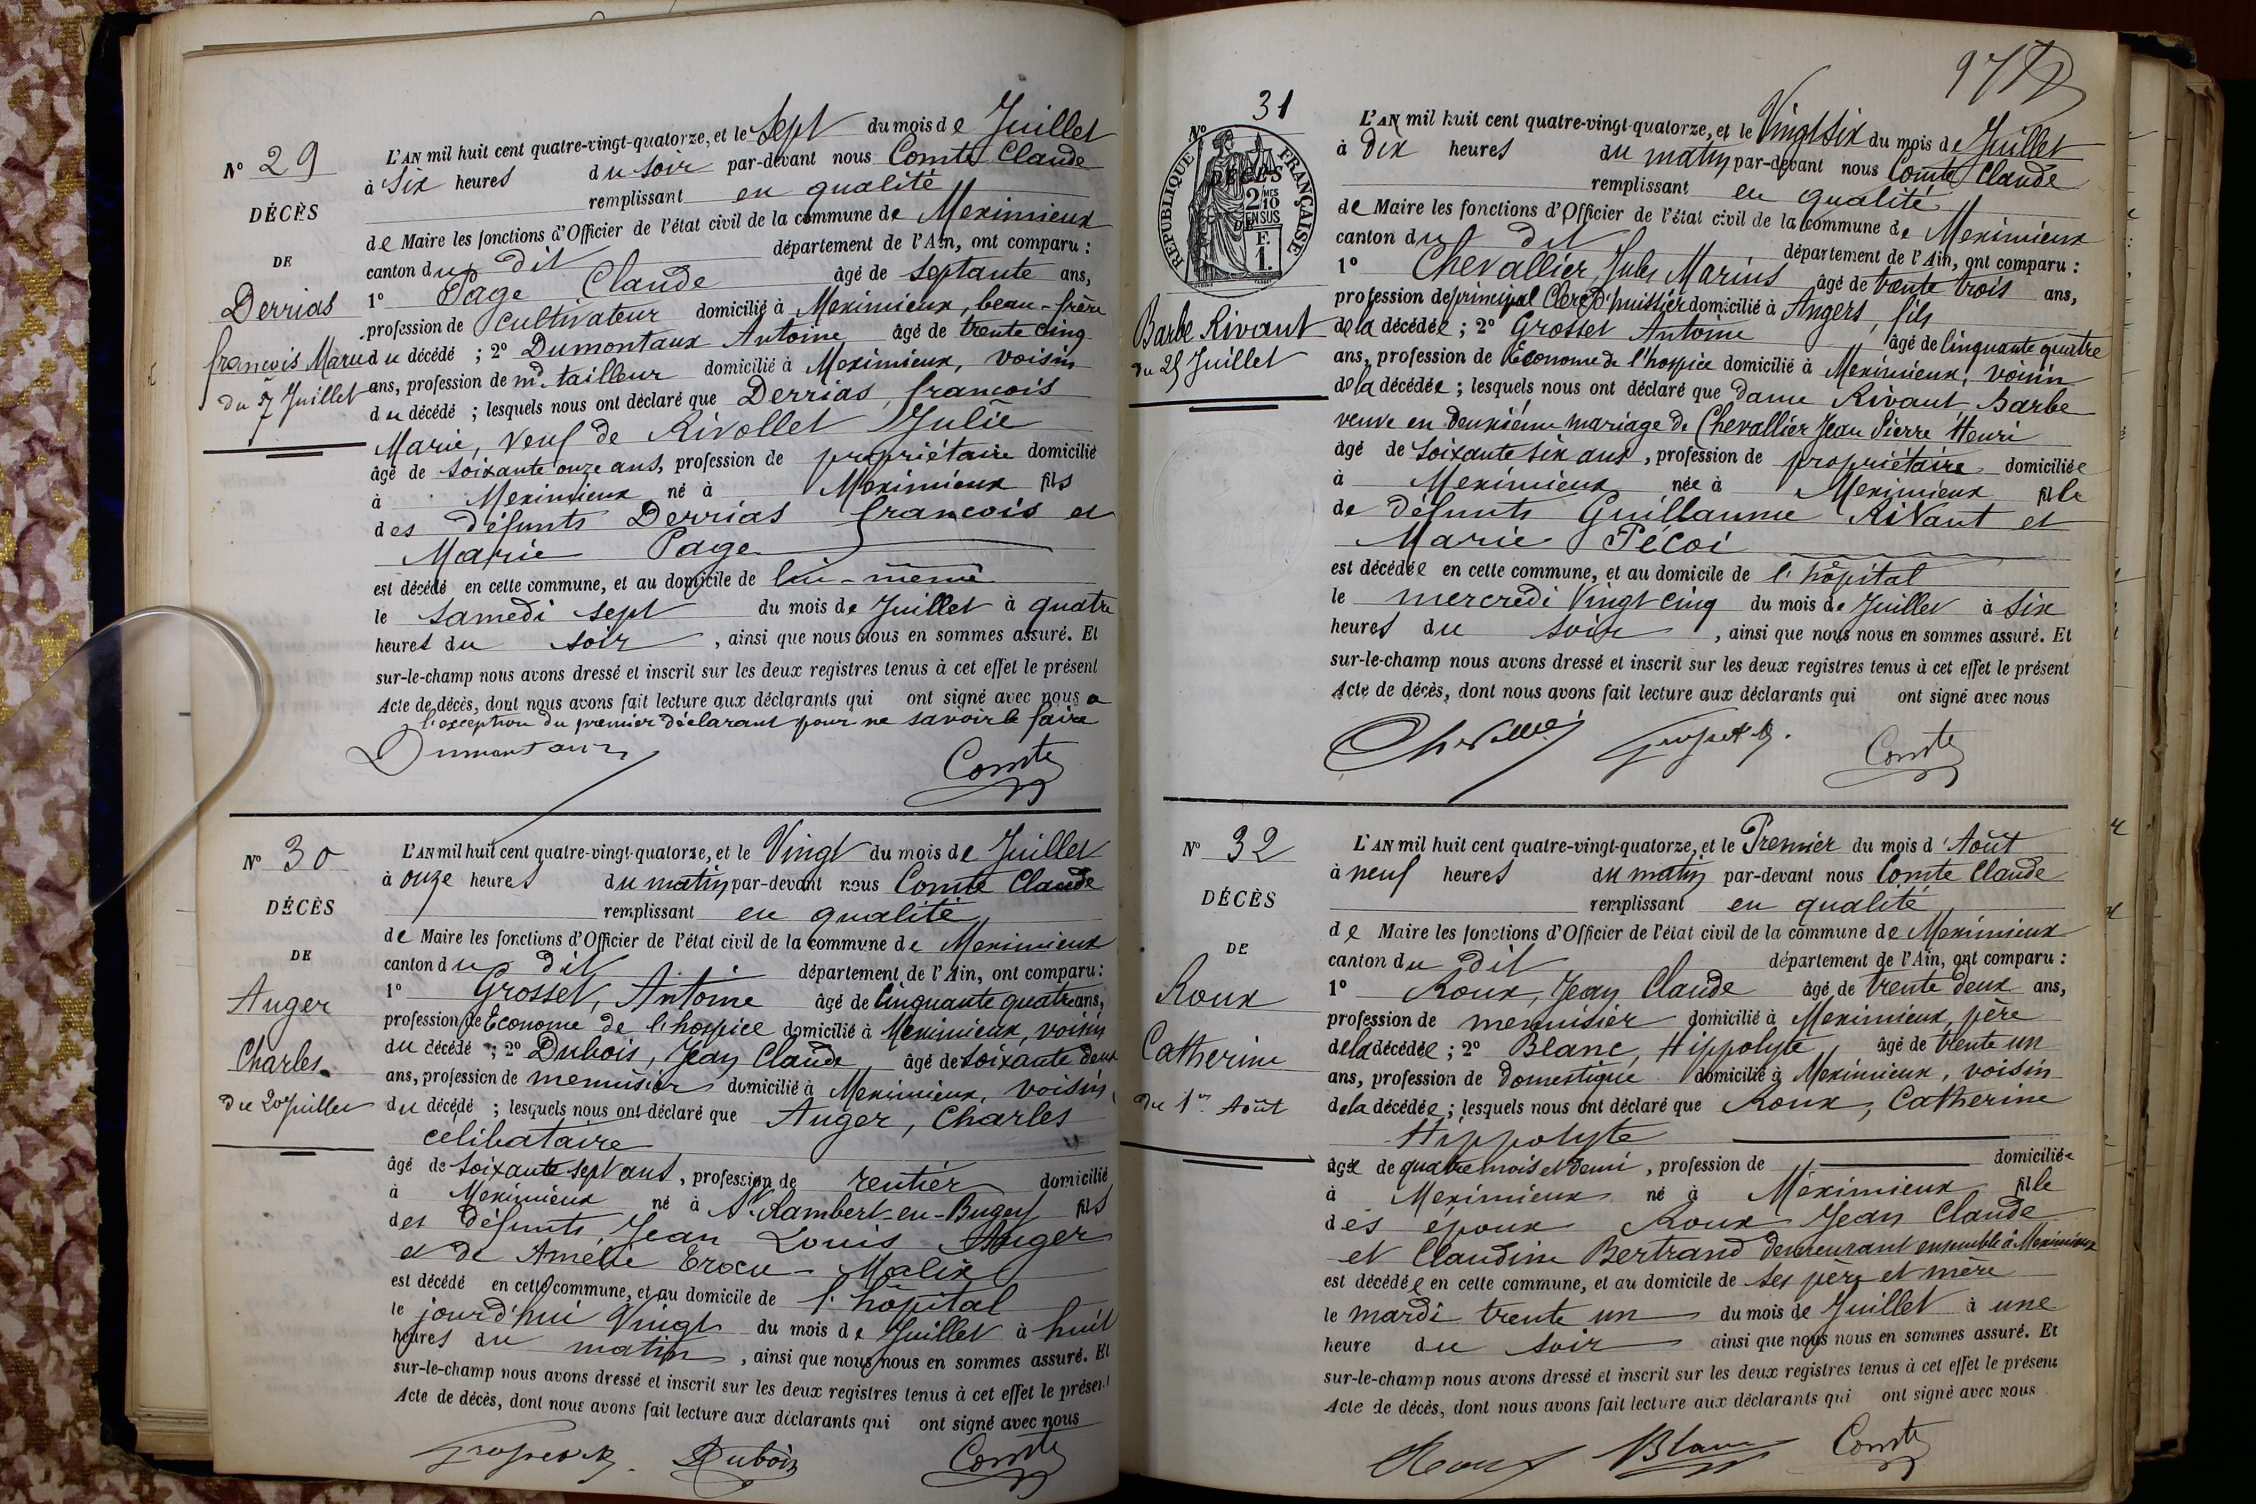 N° 29
DÉCÈS
DE
Derrias
francois Marie
du 7 Juillet
L'AN mil huit cent quatre-vingt-quatorze, et le Sept du mois de Juillet
à Six heures du soir par-devant nous Comte Claude
remplissant en qualité
de Maire les fonctions d'Officier de l'état civil de la commune de Meximieux
canton du dit département de l'Ain, ont comparu :
1° Page Claude âgé de septante ans,
profession de cultivateur domicilié à Meximieux, beau-frère
du décédé ; 2° Dumontaux Antoine âgé de trente cinq
ans, profession de md tailleur domicilié à Meximieux, voisin
du décédé ; lesquels nous ont déclaré que Derrias, francois
Marie, veuf de Rivollet Julie
âgé de soixante onze ans, profession de propriétaire domicilié
à Meximieux né à Meximieux fils
des défunts Derrias francois et
Marie Page
est décédé en cette commune, et au domicile de lui-même
le samedi sept du mois de Juillet à quatre
heures du soir, ainsi que nous nous en sommes assuré. Et
sur-le-champ nous avons dressé et inscrit sur les deux registres tenus à cet effet le présent
Acte de décès, dont nous avons fait lecture aux déclarants qui ont signé avec nous a
l'exception du premier déclarant pour ne savoir le faire
Dumontaux Comte
N° 30
DÉCÈS
DE
Auger
Charles
du 20 Juillet
L'AN mil huit cent quatre-vingt-quatorze, et le Vingt du mois de Juillet
à onze heures du matin par-devant nous Comte Claude
remplissant en qualité
de Maire les fonctions d'Officier de l'état civil de la commune de Meximieux
canton du dit département de l'Ain, ont comparu :
1° Grosset, Antoine âgé de Cinquante quatre ans,
profession de Econome de l'hospice domicilié à Meximieux, voisin
du décédé ; 2° Dubois, Jean Claude âgé de soixante deux
ans, profession de menuisier domicilié à Meximieux, voisin
du décédé ; lesquels nous ont déclaré que Auger, Charles
célibataire
âgé de soixante sept ans, profession de rentier domicilié
à Meximieux né à St Rambert-en-Bugey fils
des défunts Jean Louis Auger
et de Amélie Malix
est décédé en cette commune, et au domicile de l'hôpital
le jourd'hui Vingt du mois de Juillet à huit
heures du matin, ainsi que nous nous en sommes assuré. Et
sur-le-champ nous avons dressé et inscrit sur les deux registres tenus à cet effet le présent
Acte de décès, dont nous avons fait lecture aux déclarants qui ont signé avec nous
Grosset A. Dubois Comte
97
N° 31
RÉPUBLIQUE FRANÇAISE
DÉCÈS
2/10MES
EN SUS
DE
F.
1.
Barbe Rivaut
du 25 Juillet
L'AN mil huit cent quatre-vingt-quatorze, et le Vingt six du mois de Juillet
à dix heures du matin par-devant nous Comte Claude
remplissant en qualité
de Maire les fonctions d'Officier de l'état civil de la commune de Meximieux
canton du dit département de l'Ain, ont comparu :
1° Chevallier Jules Marius âgé de trente trois ans,
profession de principal Clerc d'huissier domicilié à Angers, fils
de la décédée ; 2° Grosset Antoine âgé de Cinquante quatre
ans, profession de Econome de l'hospice domicilié à Meximieux, voisin
de la décédée ; lesquels nous ont déclaré que dame Rivaut Barbe
veuve en deuxième mariage de Chevallier Jean Pierre Henri
âgé de Soixante six ans, profession de propriétaire domiciliée
à Meximieux née à Meximieux fille
de défunts Guillaume Rivaut et
Marie Pécoi
est décédée en cette commune, et au domicile de l'hôpital
le mercredi Vingt cinq du mois de Juillet à six
heures du soir, ainsi que nous nous en sommes assuré. Et
sur-le-champ nous avons dressé et inscrit sur les deux registres tenus à cet effet le présent
Acte de décès, dont nous avons fait lecture aux déclarants qui ont signé avec nous
Grosset A. Comte
N° 32
DÉCÈS
DE
Roux
Catherine
du 1er Août
L'AN mil huit cent quatre-vingt-quatorze, et le Premier du mois d'Août
à neuf heures du matin par-devant nous Comte Claude
remplissant en qualité
de Maire les fonctions d'Officier de l'état civil de la commune de Meximieux
canton du dit département de l'Ain, ont comparu :
1° Roux, Jean Claude âgé de trente deux ans,
profession de menuisier domicilié à Meximieux, père
de la décédée ; 2° Blanc, Hippolyte âgé de trente un
ans, profession de domestique domicilié à Meximieux, voisin
de la décédée ; lesquels nous ont déclaré que Roux, Catherine
Hippolyte
âgée de quatre mois et demi, profession de domiciliée
à Meximieux né à Meximieux fille
des époux Roux Jean Claude
et Claudine Bertrand demeurant ensemble à Meximieux
est décédée en cette commune, et au domicile de ses père et mère
le mardi trente un du mois de Juillet à une
heure du soir ainsi que nous nous en sommes assuré. Et
sur-le-champ nous avons dressé et inscrit sur les deux registres tenus à cet effet le présent
Acte de décès, dont nous avons fait lecture aux déclarants qui ont signé avec nous
Roux Blanc Comte